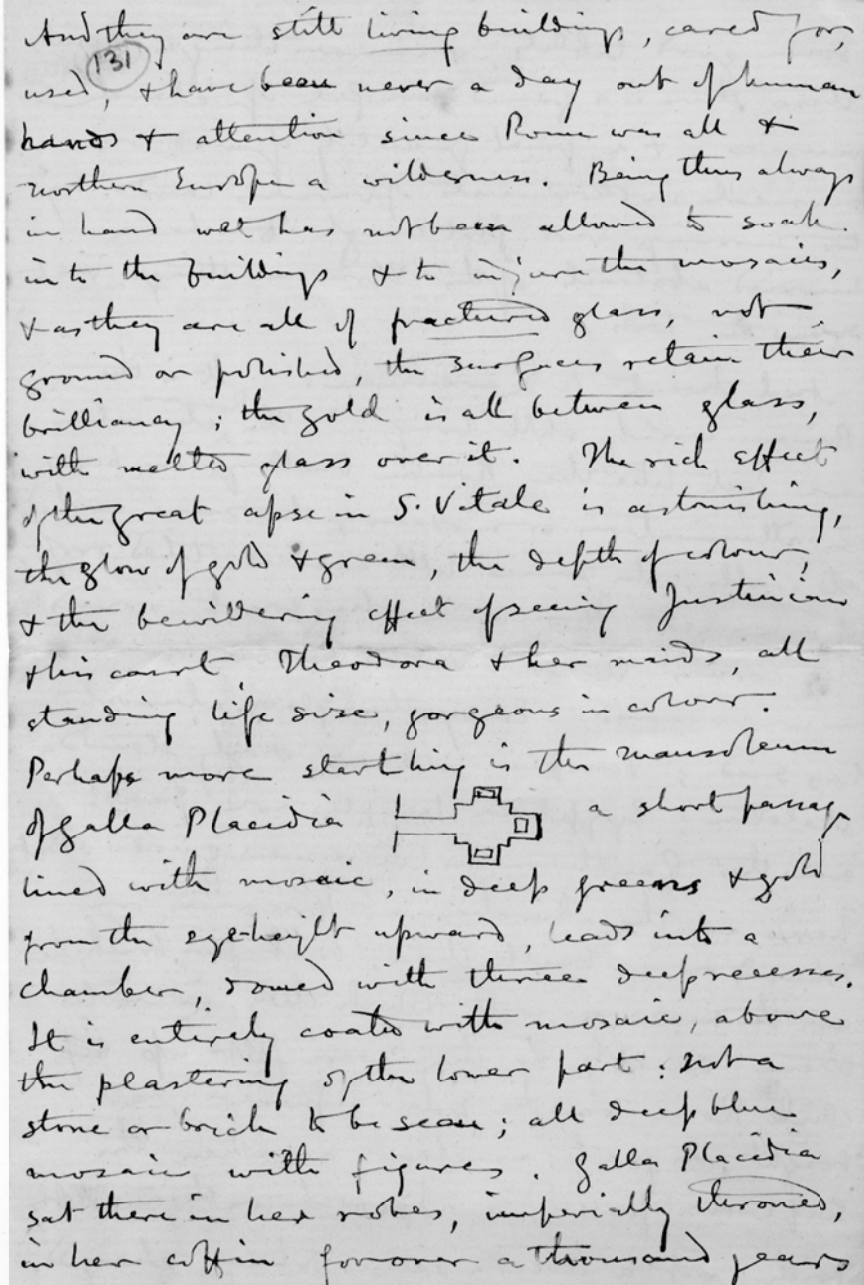 And they are still living buildings, cared for,
131
used, & have been never a day out of human
hands & attention since Rome was all &
northern Europe a wilderness. Being thus always
in hand wet has not been allowed to soak
into the buildings & to injure the mosaics,
& as they are all of fractured glass, not
ground or polished, the surfaces retain their
brilliancy; the gold is all between glass,
with melted glass over it. The rich effect
of the great apse in S. Vitale is astonishing,
the glow of gold & green, the depth of colour,
& the bewildering effect of seeing Justinian
& his court, Theodora & her maids, all
standing life size, gorgeous in colour.
Perhaps more startling is the mausoleum
of Galla Placidia a short passage
lined with mosaic, in deep greens & gold
from the eye-height upward, leads into a
chamber, domed with three deep recesses.
It is entirely coated with mosaic, above
the plastering of the lower part: not a
stone or brick to be seen; all deep blue
mosaic with figures. Galla Placidia
sat there in her robes, imperially throned,
in her coffin for over a thousand years